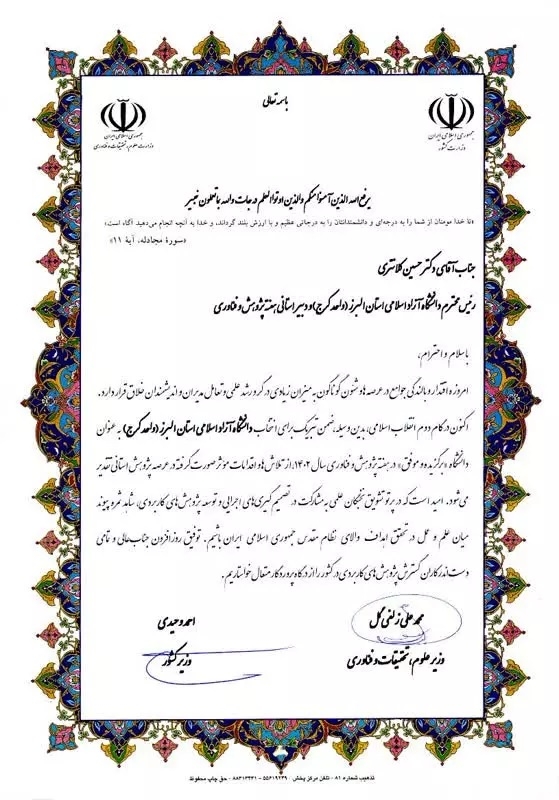 باسمه تعالی
جمهوری اسلامی ایران
وزارت کشور
جمهوری اسلامی ایران
وزارت علوم، تحقیقات و فناوری
یرفع الله الذین آمنوا منکم والذین اوتوا العلم درجات والله بما تعملون خبیر
«تا خدا مومنان از شما را به درجه‌ای و دانشمندانتان را به درجاتی عظیم و با ارزش بلند گردانند، و خدا به آنچه انجام می‌دهید آگاه است»
«سورهٔ مجادله، آیهٔ ۱۱»
جناب آقای دکتر حسین کلانتری
رئیس محترم دانشگاه آزاد اسلامی استان البرز (واحد کرج) و دبیر استانی هفته پژوهش و فناوری
با سلام و احترام،
امروزه اقتدار و بالندگی جوامع در عرصه‌ها و شئون گوناگون به میزان زیادی در گرو رشد علمی و تعامل مدیران و اندیشمندان خلاق قرار دارد.
اکنون در گام دوم انقلاب اسلامی، بدین وسیله، ضمن تبریک برای انتخاب دانشگاه آزاد اسلامی استان البرز (واحد کرج) به عنوان
دانشگاه «برگزیده و موفق» در هفته پژوهش و فناوری سال ۱۴۰۲، از تلاش‌ها و اقدامات مؤثر صورت گرفته در عرصه پژوهش استانی تقدیر
می‌شود. امید است که در پرتو تشویق نخبگان علمی به مشارکت در تصمیم گیری‌های اجرایی و توسعه پژوهش‌های کاربردی، شاهد ثمره پیوند
میان علم و عمل در تحقق اهداف والای نظام مقدس جمهوری اسلامی ایران باشیم. توفیق روزافزون جناب‌عالی و تمامی
دست اندرکاران گسترش پژوهش‌های کاربردی در کشور را از درگاه پروردگار متعال خواستاریم.
محمد علی زلفی گل
وزیر علوم، تحقیقات و فناوری
احمد وحیدی
وزیر کشور
تذهیب شماره ۸۱ - تلفن مرکز پخش: ۵۵۶۱۹۲۳۹ - ۸۸۳۱۳۳۳۱ - حق چاپ محفوظ